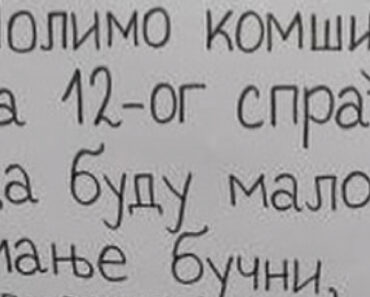 олимо комши
а 12-ог спра
а буду мало
ање бучни,